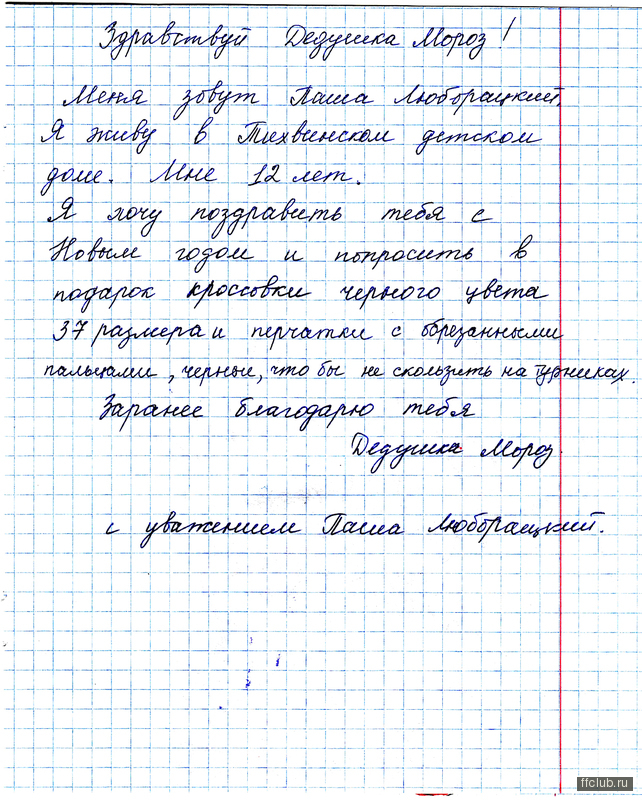 Здравствуй Дедушка Мороз!
Меня зовут Паша Люборацкий.
Я живу в Тихвинском детском
доме. Мне 12 лет.
Я хочу поздравить тебя с
Новым годом и попросить в
подарок кроссовки черного цвета
37 размера и перчатки с обрезанными
пальцами, черные, что бы не скользить на турниках.
Заранее благодарю тебя
Дедушка Мороз.
с уважением Паша Люборацкий.
ffclub.ru